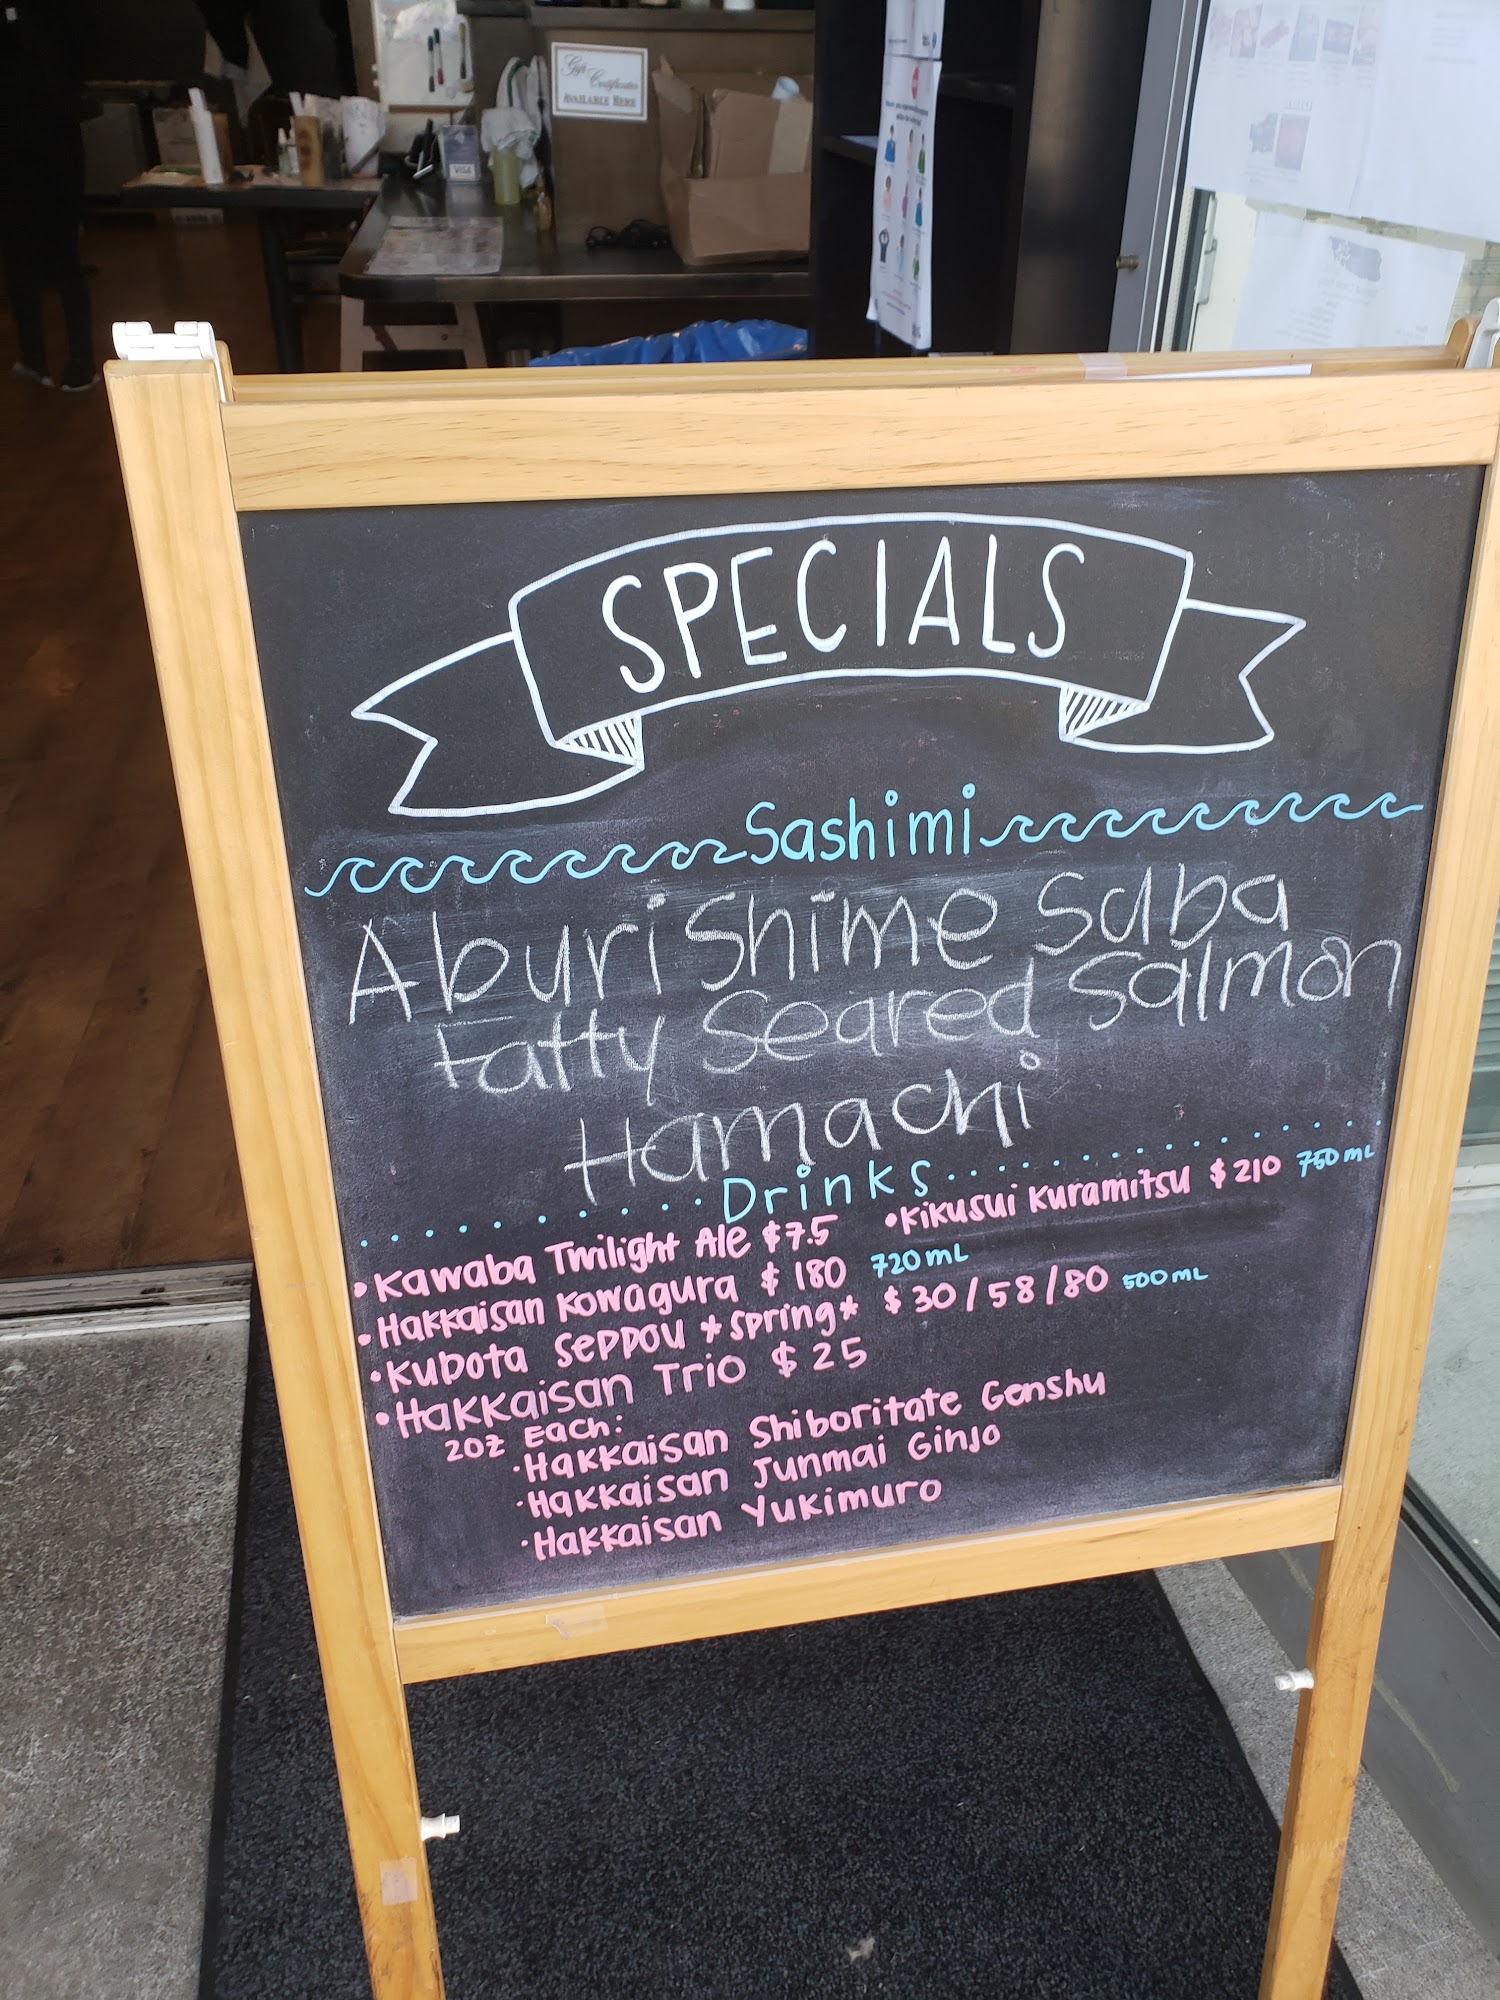 Gift
Certificates
AVAILABLE HERE
VISA
SPECIALS
Sashimi
Aburi Shime Saba
Fatty Seared Salmon
Hamachi
Drinks
• Kawaba Twilight Ale $7.5
• Kikusui Kuramitsu $210 750mL
• Hakkaisan Kowagura $180 720mL
• Kubota Seppou *Spring* $30/58/80 500mL
• Hakkaisan Trio $25
2oz Each:
• Hakkaisan Shiboritate Genshu
• Hakkaisan Junmai Ginjo
• Hakkaisan Yukimuro